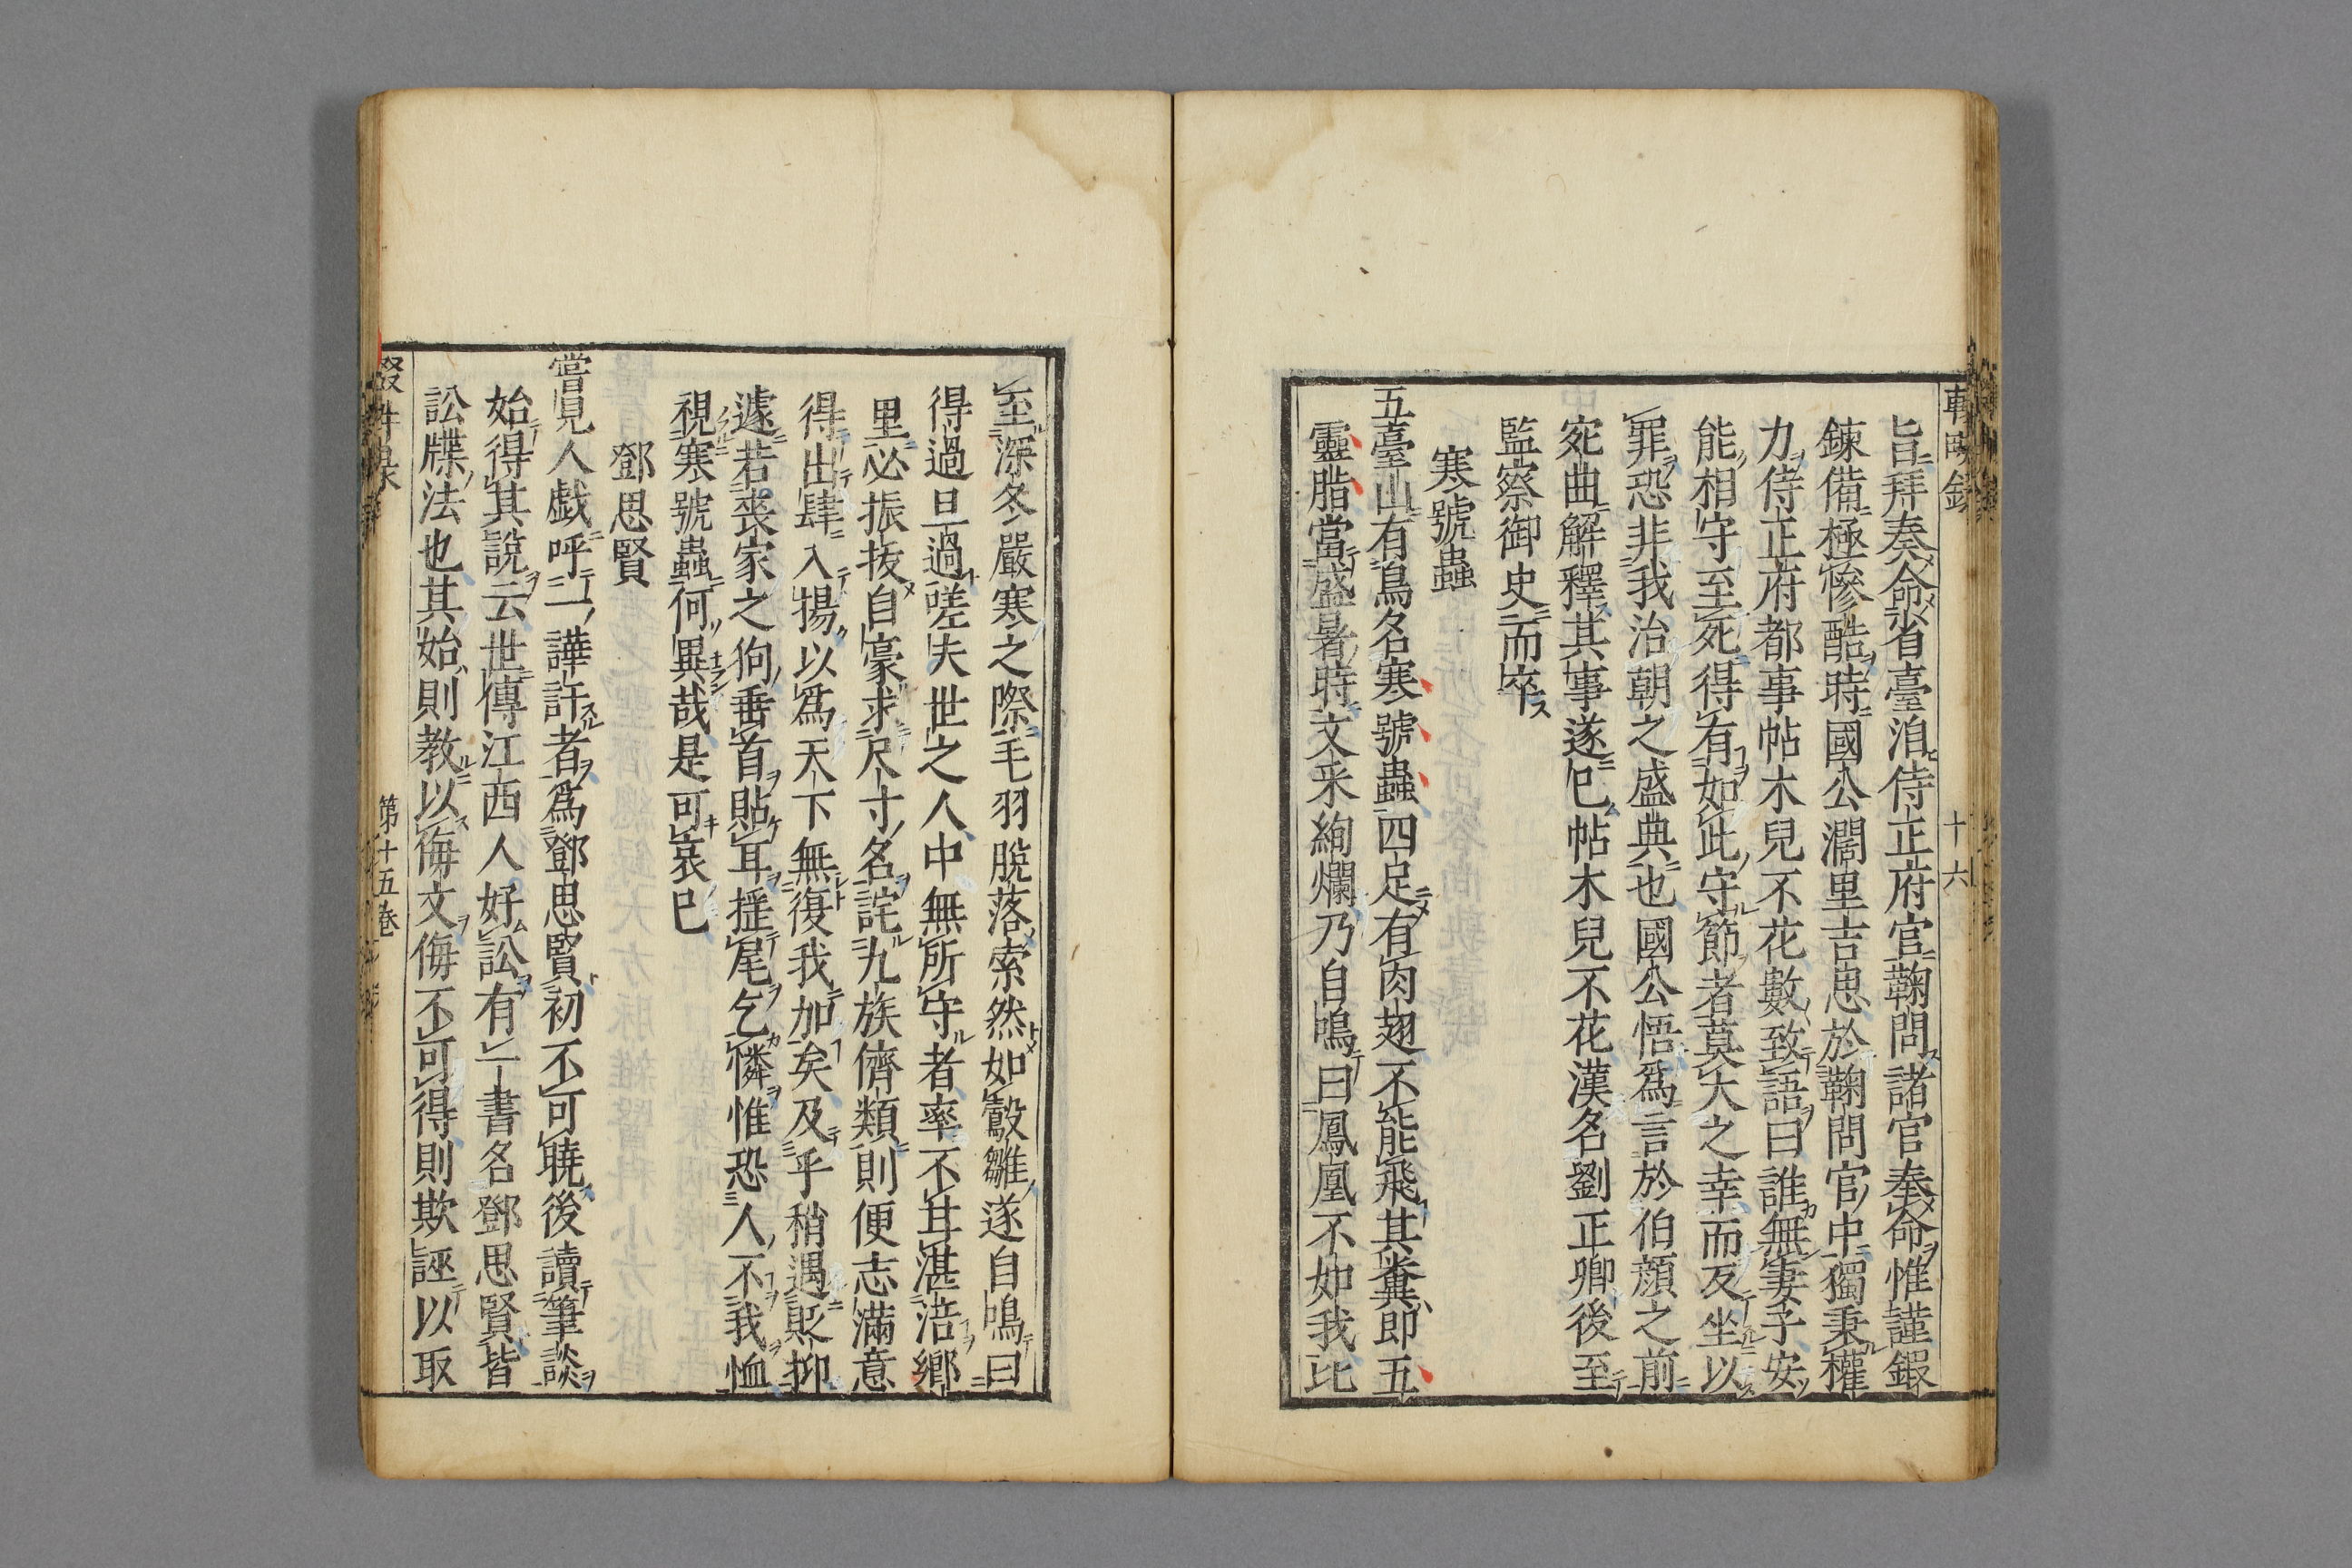 輟畊錄
十六
旨拜奏命省臺洎侍正府官鞠問諸官奏命惟謹鍛
鍊備極慘酷時國公濶里吉思於鞠問官中獨秉權
力侍正府都事帖木兒不花數致語曰誰無妻子安
能相守至死得有如此守節者莫大之幸而反坐以
罪恐非我治朝之盛典也國公悟爲言於伯顏之前
宛曲解釋其事遂已帖木兒不花漢名劉正卿後至
監察御史而卒
寒號蟲
五臺山有鳥名寒號蟲四足有肉翅不能飛其糞即五
靈脂當盛暑時文采絢爛乃自鳴曰鳳凰不如我比
至深冬嚴寒之際毛羽脫落索然如鷇雛遂自鳴曰
得過且過嗟夫世之人中無所守者率不甘湛涪鄉
里必振拔自豪求尺寸名詫九族儕類則便志滿意
得出肆入揚以爲天下無復我加矣及乎稍遇貶抑
遽若喪家之狗垂首貼耳搖尾乞憐惟恐人不我恤
視寒號蟲何異哉是可哀已
鄧思賢
嘗見人戯呼二譁訐者爲鄧思賢初不可曉後讀筆談
始得其說云世傳江西人好訟有一書名鄧思賢皆
訟牒法也其始則教以侮文侮不可得則欺誣以取
第十五卷